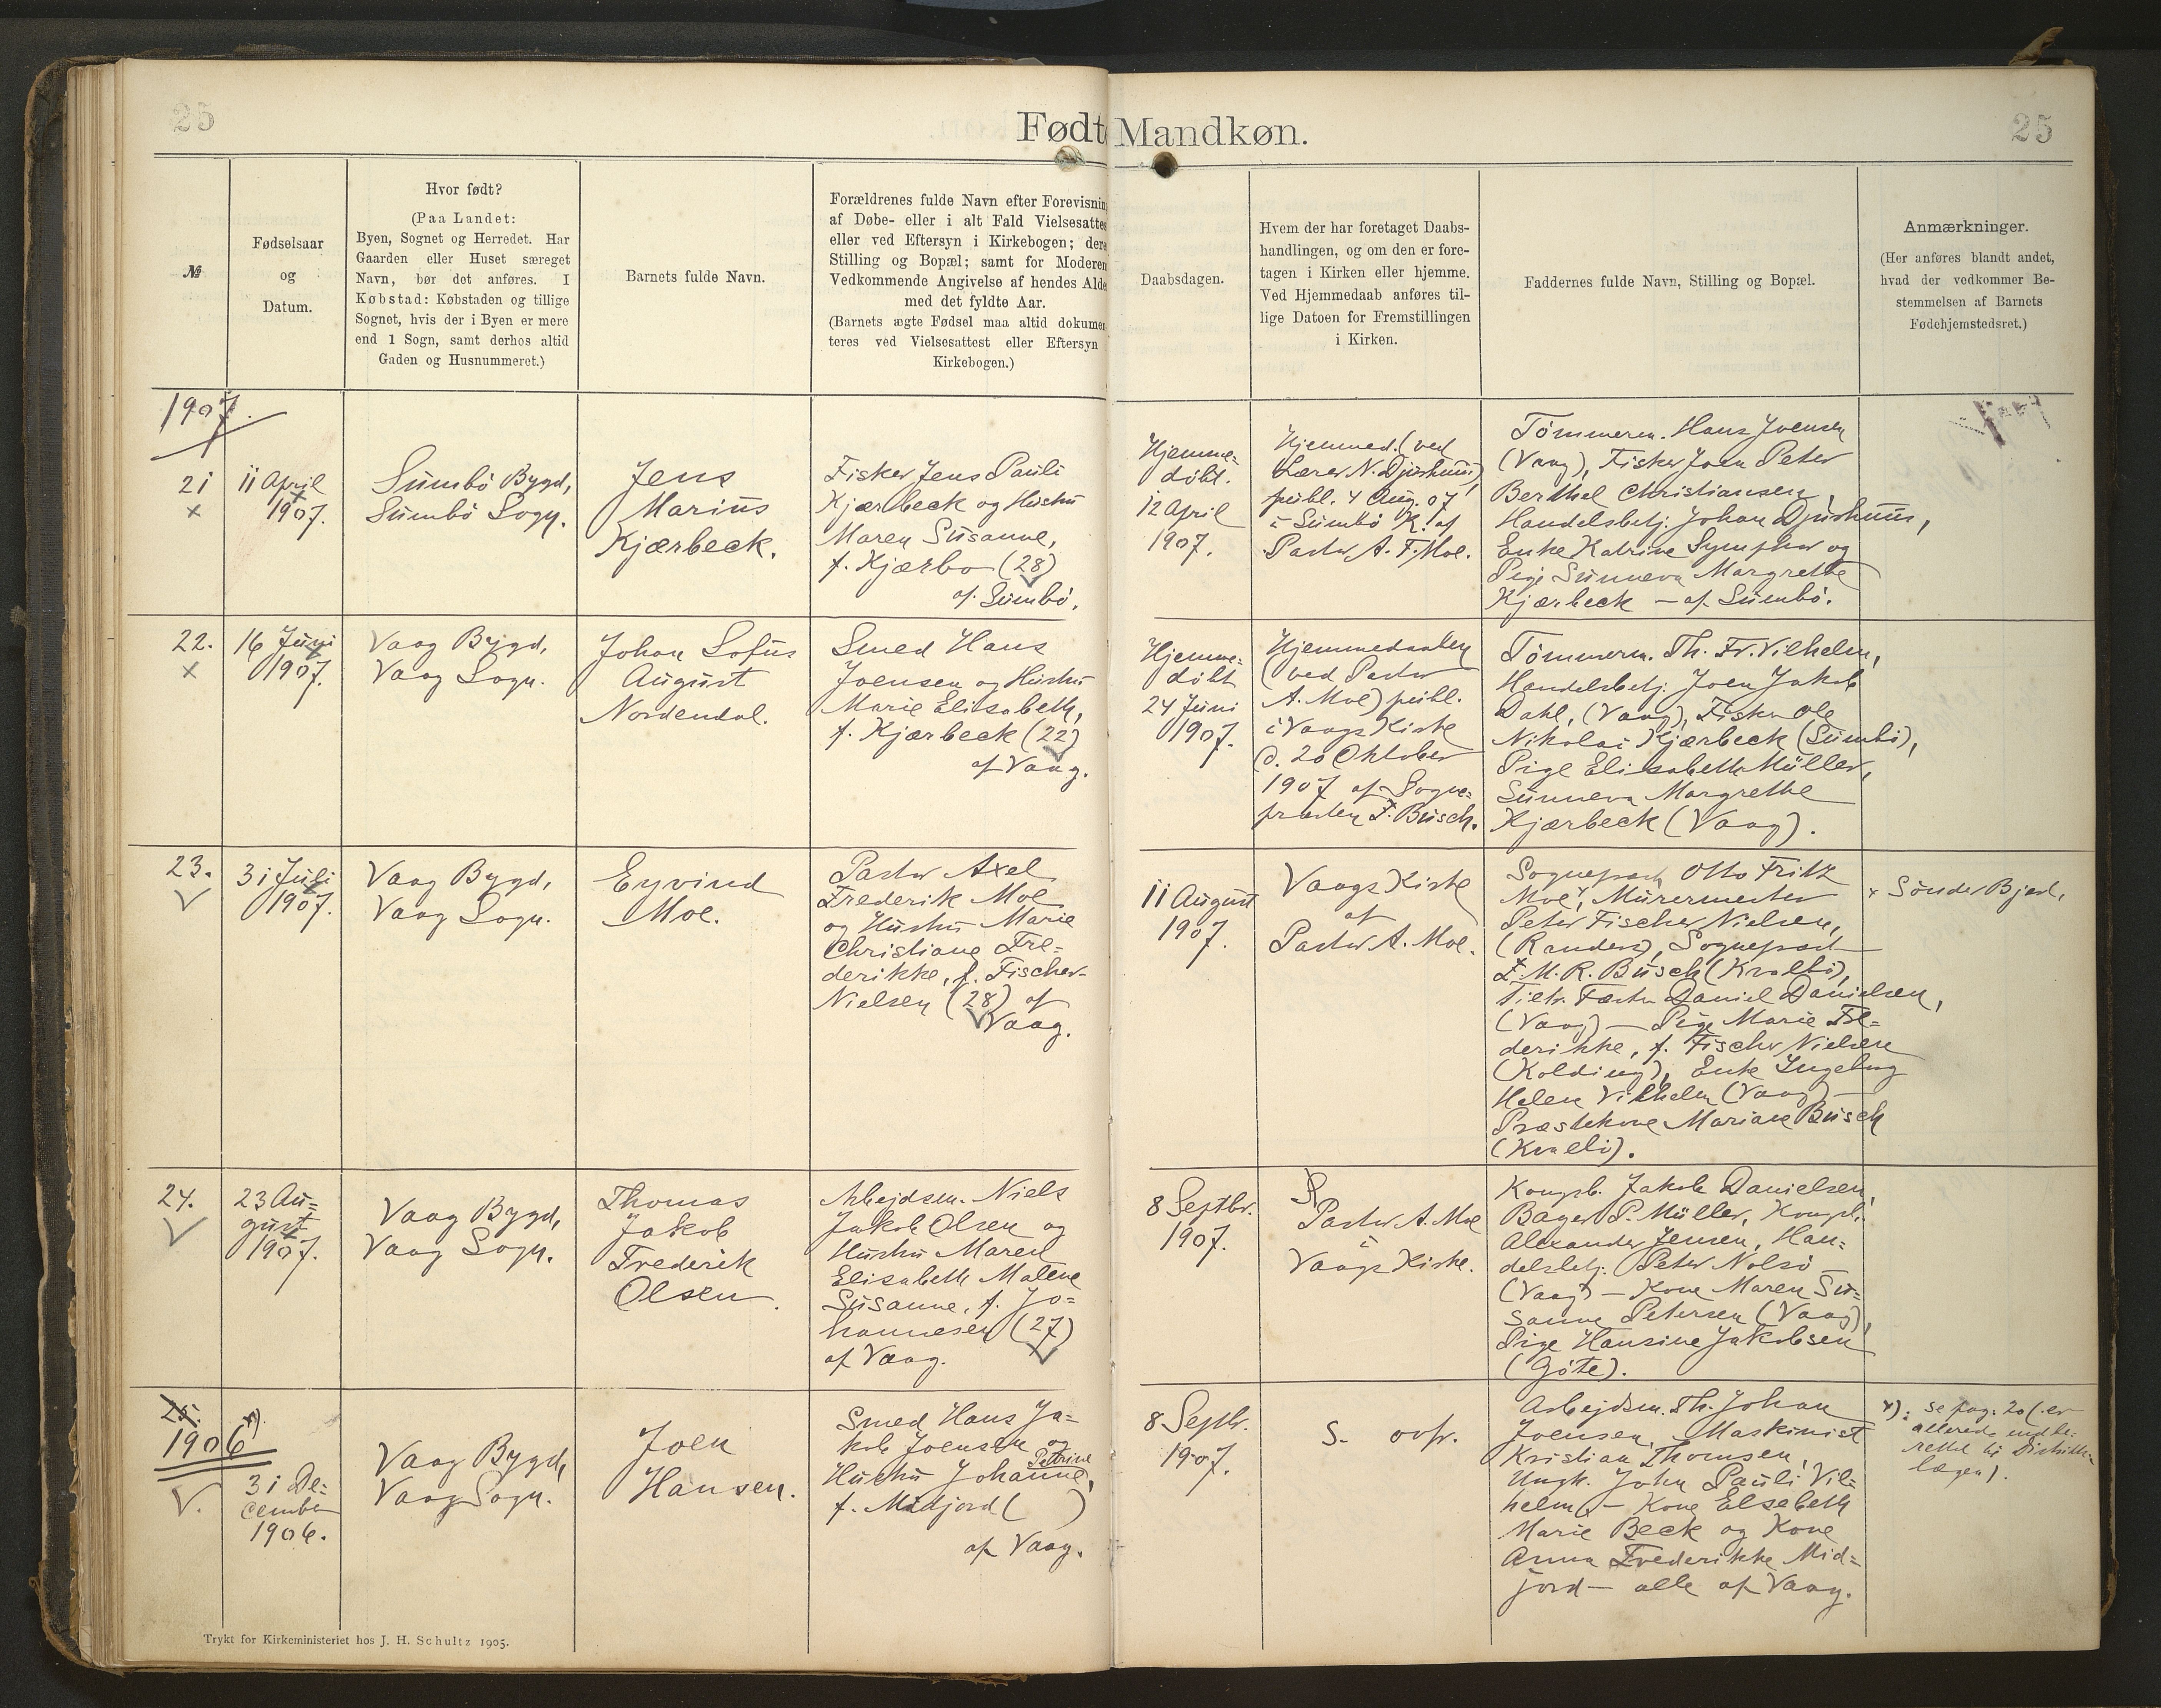 25
Fødte Mandkøn.
25
№
Fødselsaar
og
Datum.
Hvor født?
(Paa Landet:
Byen, Sognet og Herredet. Har
Gaarden eller Huset særeget
Navn, bør det anføres. I
Købstad: Købstaden og tillige
Sognet, hvis der i Byen er mere
end 1 Sogn, samt derhos altid
Gaden og Husnummeret.)
Barnets fulde Navn.
Forældrenes fulde Navn efter Forevisning
af Døbe- eller i alt Fald Vielsesattes
eller ved Eftersyn i Kirkebogen; dere
Stilling og Bopæl; samt for Moderen
Vedkommende Angivelse af hendes Alde
med det fyldte Aar.
(Barnets ægte Fødsel maa altid dokumen
teres ved Vielsesattest eller Eftersyn i
Kirkebogen.)
Daabsdagen.
Hvem der har foretaget Daabs-
handlingen, og om den er fore-
tagen i Kirken eller hjemme.
Ved Hjemmedaab anføres til-
lige Datoen for Fremstillingen
i Kirken.
Faddernes fulde Navn, Stilling og Bopæl.
Anmærkninger.
(Her anføres blandt andet,
hvad der vedkommer Be-
stemmelsen af Barnets
Fødehjemstedsret.)
1907.
21
×
11 April
1907.
Sumbö Bygd,
Sumbö Sogn.
Jens
Marius
Kjærbeck.
Fisker Jens Pauli
Kjærbeck og Hustru
Maren Susanne,
f. Kjærbo (28)
af Sumbö.
Hjemme=
döbt.
12 April
1907.
Hjemmed. (ved
Lærer N. Djurhuus)
publ. 4 Aug. 07
i Sumbö K. af
Pastor A. F. Moe.
Tömmerm. Hans Joensen
(Vaag), Fisker Joen Peter
Berthel Christiansen,
Handelsbetj. Johan Djurhuus,
Enke Katrine Symphor og
Pige Sunneva Margrethe
Kjærbeck — af Sumbö.
22.
×
16 Juni
1907.
Vaag Bygd,
Vaag Sogn.
Johan Sofus
August
Nordendal.
Smed Hans
Joensen og Hustru
Marie Elisabeth,
f. Kjærbeck (22)
af Vaag.
Hjemme=
döbt
24 Juni
1907.
Hjemmedaaben
(ved Pastor
A. Moe) publ.
i Vaags Kirke
d. 20 Oktober
1907 af Sogne=
præsten F. Busch.
Tömmerm. Th. Fr. Vilhelm,
Handelsbetj. Joen Jakob
Dahl, (Vaag), Fisker Ole
Nikolai Kjærbeck (Sumbö),
Pige Elisabeth Müller,
Sunneva Margrethe
Kjærbeck (Vaag).
23.
31 Juli
1907.
Vaag Bygd,
Vaag Sogn.
Eyvind
Moe.
Pastor Axel
Frederik Moe
og Hustru Marie
Christiane Fre=
derikke, f. Fischer-
Nielsen (28) af
Vaag.
11 August
1907.
Vaags Kirke
af
Pastor A. Moe.
Sognepræst Otto Fritz
Moe,× Murermester
Peter Fischer Nielsen,
(Randers), Sognepræst
F. M. R. Busch (Kvalbö),
Daniel Danielsen,
(Vaag) — Pige Marie Fre=
derikke, f. Fischer Nielsen
(Kolding), Enke Ingeborg
Helene Vilhelm (Vaag) —
Præstekone Mariane Busch
(Kvalbö).
× Sönder Bjert.
24.
23 Au=
gust
1907.
Vaag Bygd,
Vaag Sogn.
Thomas
Jakob
Frederik
Olsen.
Arbejdsm. Niels
Jakob Olsen og
Hustru Maren
Elisabeth Malene
Susanne, f. Jo=
hannesen (27)
af Vaag.
8 Septbr.
1907.
Pastor A. Moe
i
Vaags Kirke.
Kongsb. Jakob Danielsen,
Bager P. Müller, Kongsb.
Alexander Jensen, Han=
delsbetj. Peter Nolsö
(Vaag) — Kone Maren Su=
sanne Petersen (Vaag),
Pige Hansine Jakobsen
(Göte).
25.
1906 ×)
31 De=
cember
1906.
Vaag Bygd,
Vaag Sogn.
Joen
Hansen.
Smed Hans Ja=
kob Joensen og
Hustru Johanne Petrine,
f. Midjord ( )
af Vaag.
8 Septbr.
1907.
S. ovfr.
Arbejdsm. Th. Johan
Joensen, Maskinist
Kristian Thomsen,
Ungk. John Pauli Vil=
helm, — Kone Elsebeth
Marie Beck og Kone
Anna Frederikke Mid=
jord — alle af Vaag.
×): se pag. 20 (er
allerede indbe-
rettet til Distrikts-
lægen).
Trykt for Kirkeministeriet hos J. H. Schultz 1905.